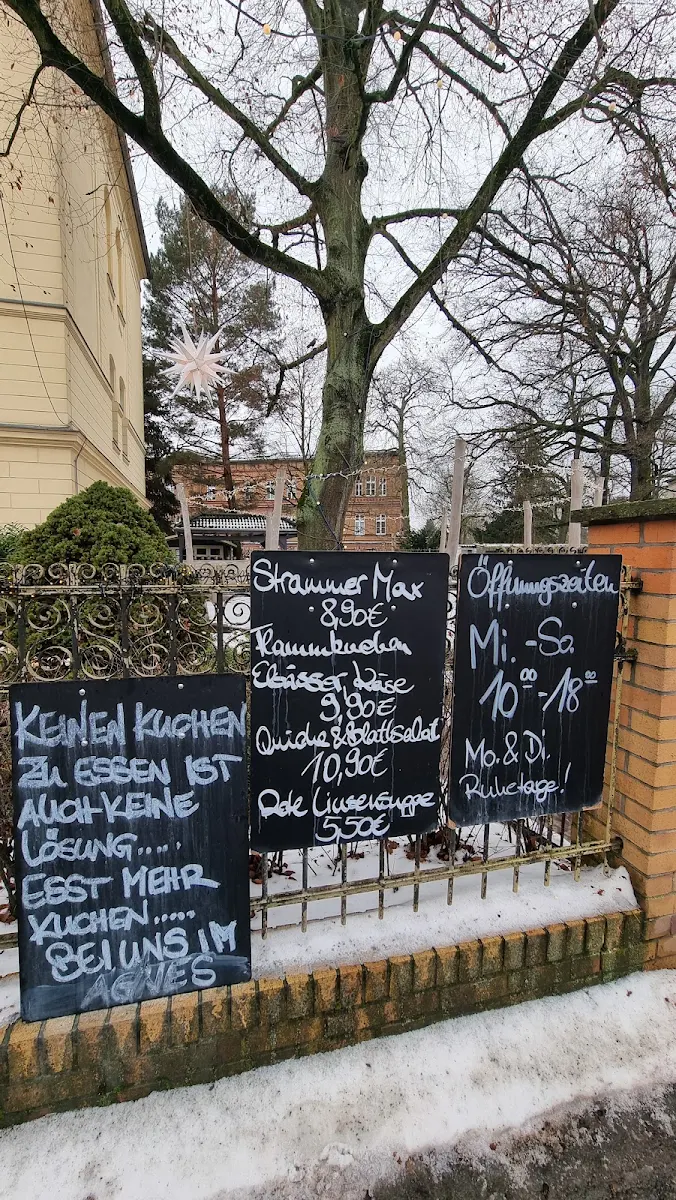 KEINEN KUCHEN
ZU ESSEN IST
AUCH KEINE
LÖSUNG.....
ESST MEHR
KUCHEN.....
BEI UNS IM
AGNES
Strammer Max
8,90€
Flammkuchen
Elsässer Käse
9,90€
Quiche & Blattsalat
10,90€
Rote Linsensuppe
5,50€
Öffnungszeiten
Mi. - So.
10⁰⁰ - 18⁰⁰
Mo. & Di.
Ruhetage!